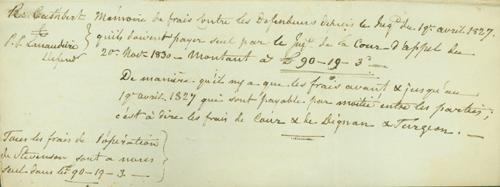 Mémoire de frais contre les Defendeurs depuis le Jugt. du 19e. avril 1827.
qu'ils doivent payer seul par le Jugt. de la Cour d'Appel du
20e. Nov. 1830 - Montant à £ 90-19-3
De manière qu'il n'y a que les frais avant & jusqu'au
19e avril 1827 qui sont payable par moitié entre les parties;
c'est à dire les frais de Cour & de Dignan & Turgeon. —
Cuthbert
Defend
Tous les frais de l'opération
de Stevenson sont a nous
seul dans les 90-19-3